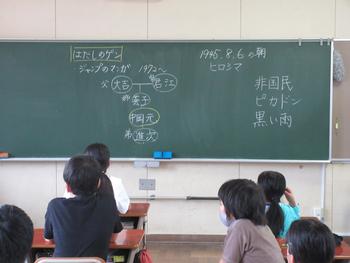 はだしのゲン
ジャンプのマンガ 1972〜
父 大吉 母 君江
姉 英子
中岡元
弟 進次
1945.8.6 の朝
ヒロシマ
非国民
ピカドン
黒い雨